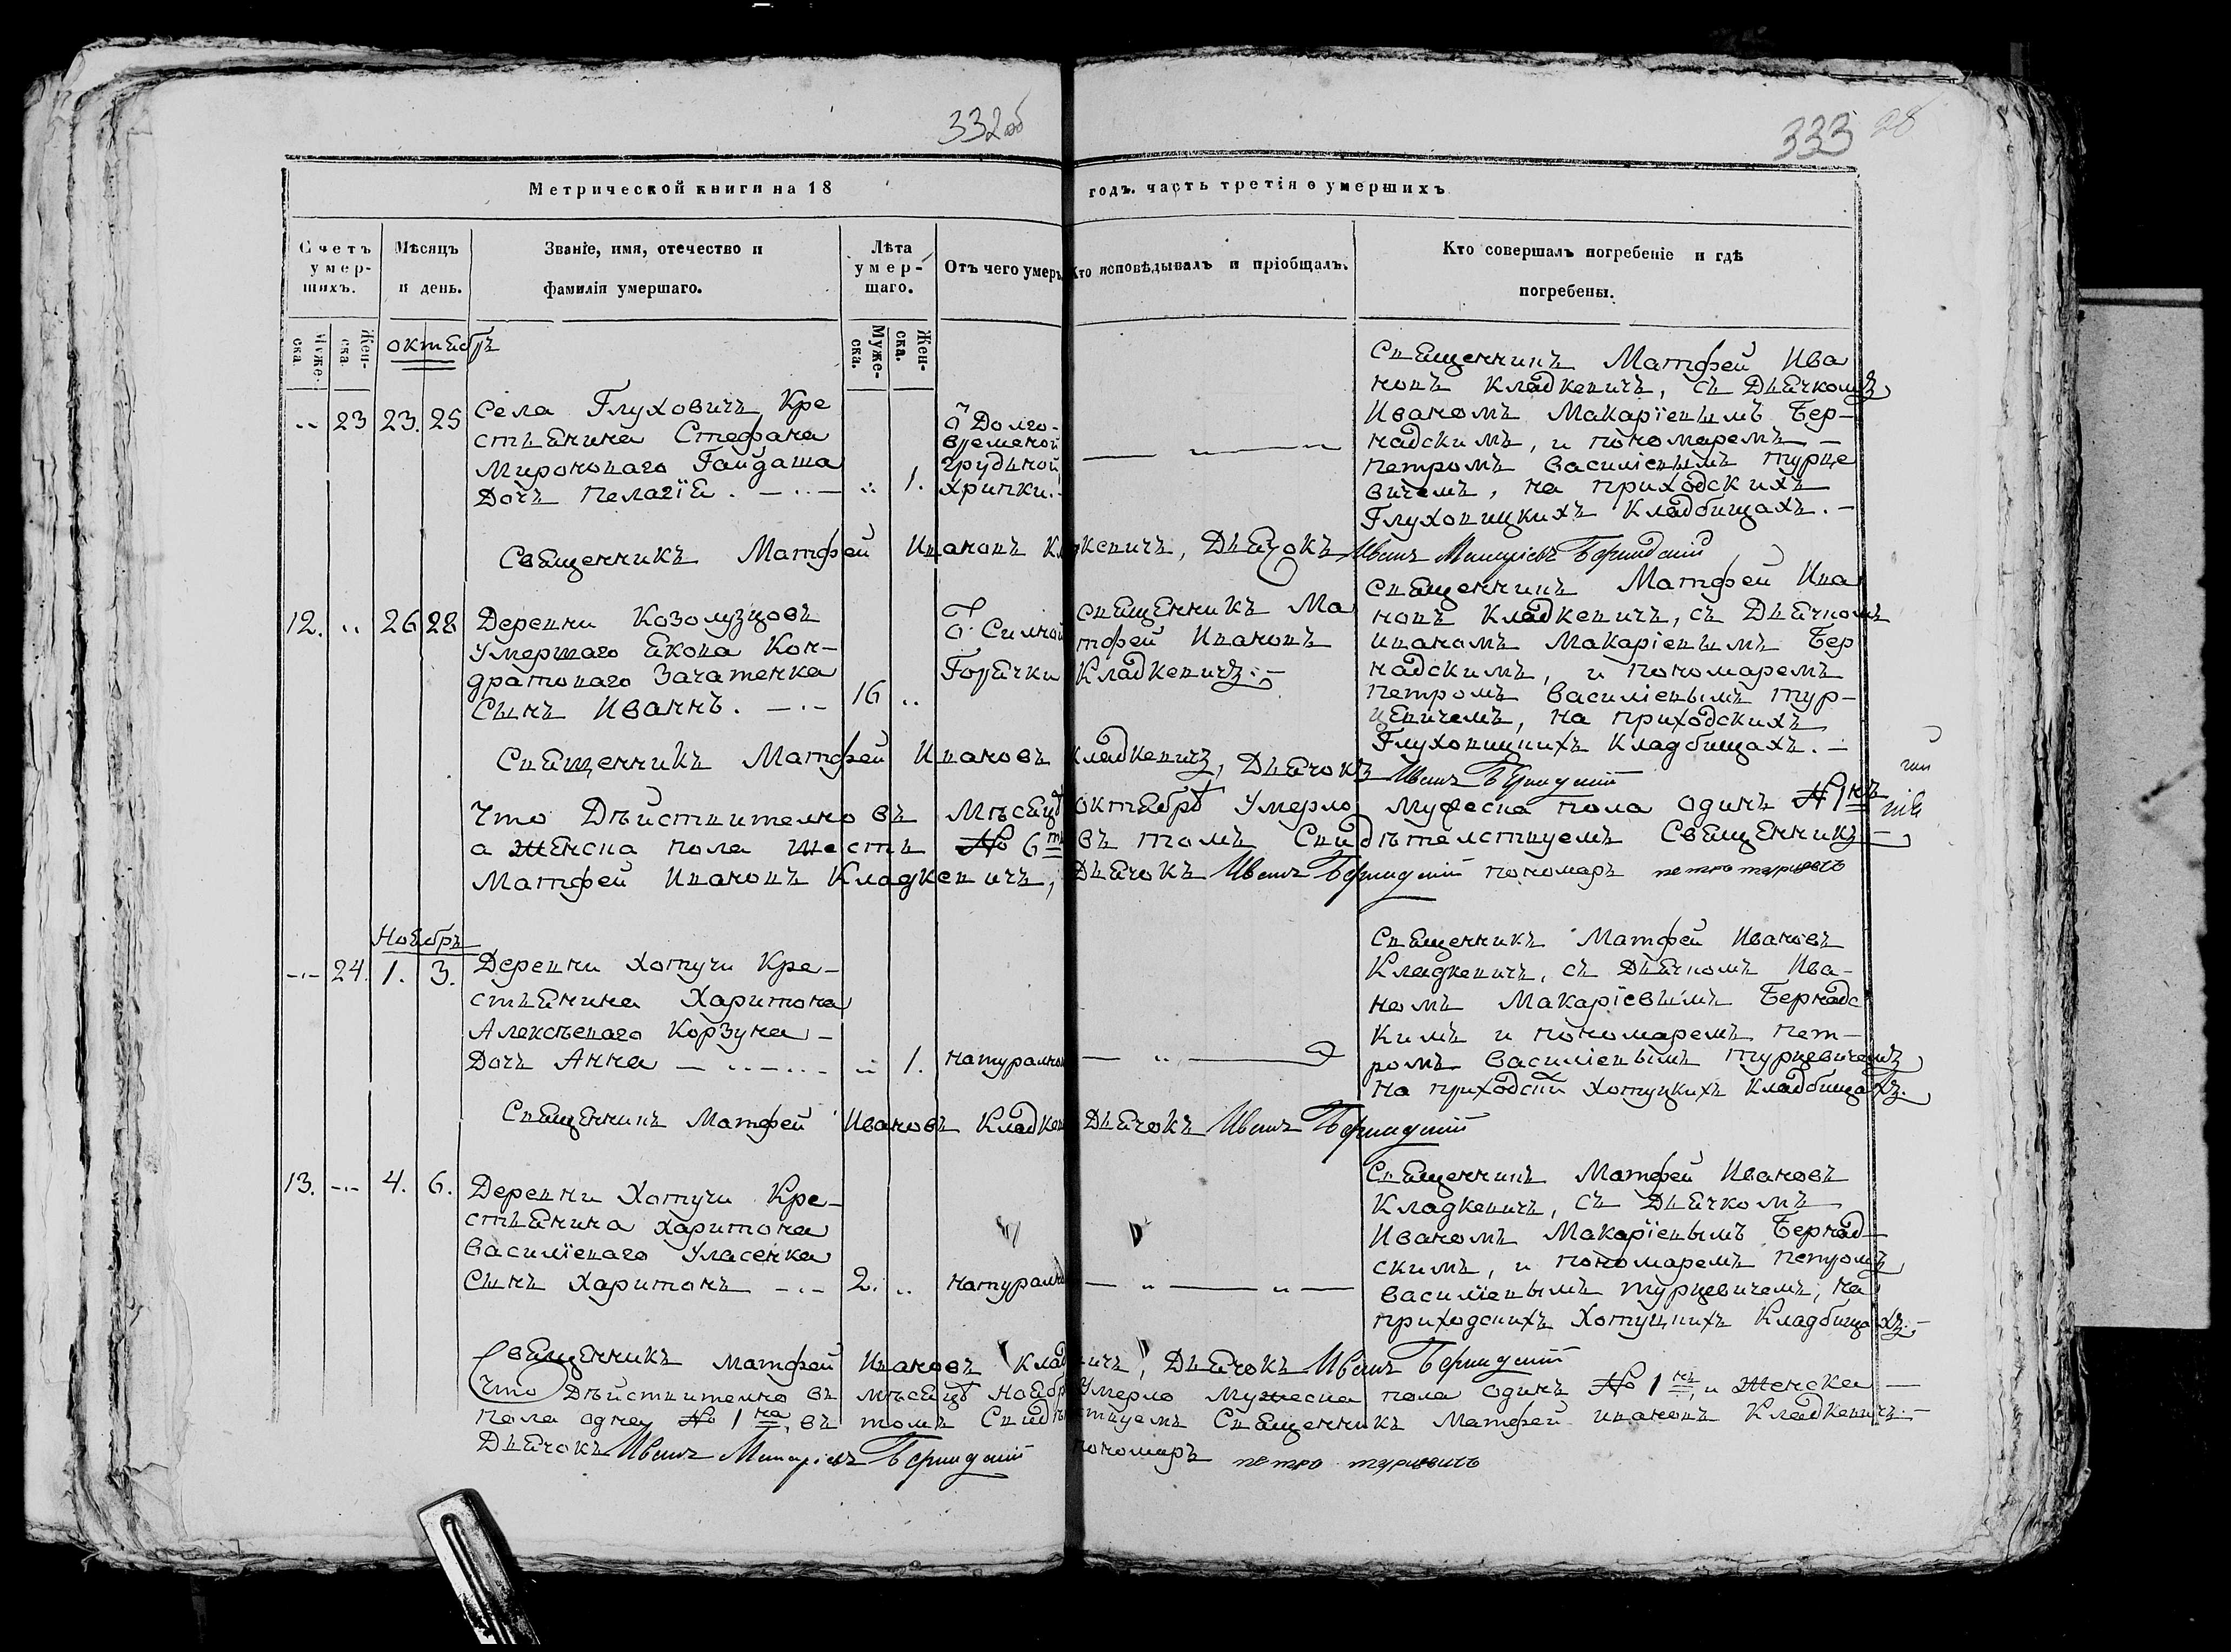 332об
333 28
Метрической книги на 18 годъ. часть третія о умершихъ
Счетъ умер-шихъ.
Мѣсяцъ и день.
Званіе, имя, отечество и фамилія умершаго.
Лѣта умер-шаго.
Отъ чего умеръ
Кто исповѣдывалъ и пріобщалъ.
Кто совершалъ погребеніе и гдѣ погребены.
Муже-ска.
Жен-ска.
Муже-ска.
Жен-ска.
октѣбръ
23 23. 25
Села Глуховичъ Кре
стьянина Стефана
Мироноваго Гайдаша
Дочъ Пелагія. 1.
Ѿ Долго-
временой
грудной
хрипки.
Священникъ Матфей Ива
новъ Кладкевичъ, съ Дьячкомъ
Иваномъ Макаріевымъ Бер-
надскимъ, и пономаремъ
петромъ василіевымъ турце
вичемъ, на приходскихъ
Глуховицкихъ Кладбищахъ.
Священникъ Матфей Ивановъ Кевичъ, Дьячокъ Иванъ Макаріевъ Бернадскій
12. 26 28
Деревни Козолузцовъ
Умершаго Якова Кон-
дратоваго Зачатенка
Сынъ Иваннъ. 16
Ѿ Силной
Горячки
Священникъ Ма
тфей Ивановъ
Кладкевичъ.
Священникъ Матфей Ива
новъ Кладкевичъ, съ Дьячкомъ
Иваномъ Макаріевымъ Бер
надскимъ, и пономаремъ
петромъ василіевымъ тур-
цевичемъ, на приходскихъ
Глуховицкихъ Кладбищахъ.
Священникъ Матфей Ивановъ Кладкевичъ, Дьячокъ Иванъ Бернадскій
Что Дѣйствително въ Мѣсяцѣ октябрѣ Умерло мужеска пола одинъ № 1нъ
а женска пола шесть № 6ть въ томъ Свидѣтелствуемъ Священникъ
Матфей Ивановъ Кладкевичъ, Дьячокъ Иванъ Бернадскій пономаръ петро турцевичъ
Ноябръ
24. 1. 3.
Деревни Хотучи Кре-
стьянина Харитона
Алексѣеваго Корзуна
Дочъ Анна 1. натуралной
Священникъ Матфей Ивановъ
Кладкевичъ, съ Дьячкомъ Ива-
номъ Макаріевымъ Бернадс
кимъ и пономаремъ пет-
ромъ василіевымъ турцевичемъ
на приходски Хотуцкихъ Кладбищахъ.
Священникъ Матфей Ивановъ Кладкев Дьячокъ Иванъ Бернадскій
13. 4. 6.
Деревни Хотучи Кре-
стьянина Харитона
Василіеваго Уласенка
Сынъ Харитонъ 2. натуралной
Священникъ Матфей Ивановъ
Кладкевичъ, съ Дьячкомъ
Иваномъ Макаріевымъ Бернад-
скимъ, и пономаремъ петромъ
василіевымъ турцевичемъ, на
приходскихъ Хотуцкихъ Кладбищахъ.
Священникъ Матфей Ивановъ Клад ичъ, Дьячокъ Иванъ Бернадскій
Что Дѣйствително въ мѣсяцѣ Ноябр Умерло мужеска пола одинъ № 1нъ, и женска
пола одна № 1на, въ томъ Свидѣтелствуемъ Священникъ Матфей Ивановъ Кладкевичъ.
Дьячокъ Иванъ Макаріевъ Бернадскій пономаръ петро турцевичъ